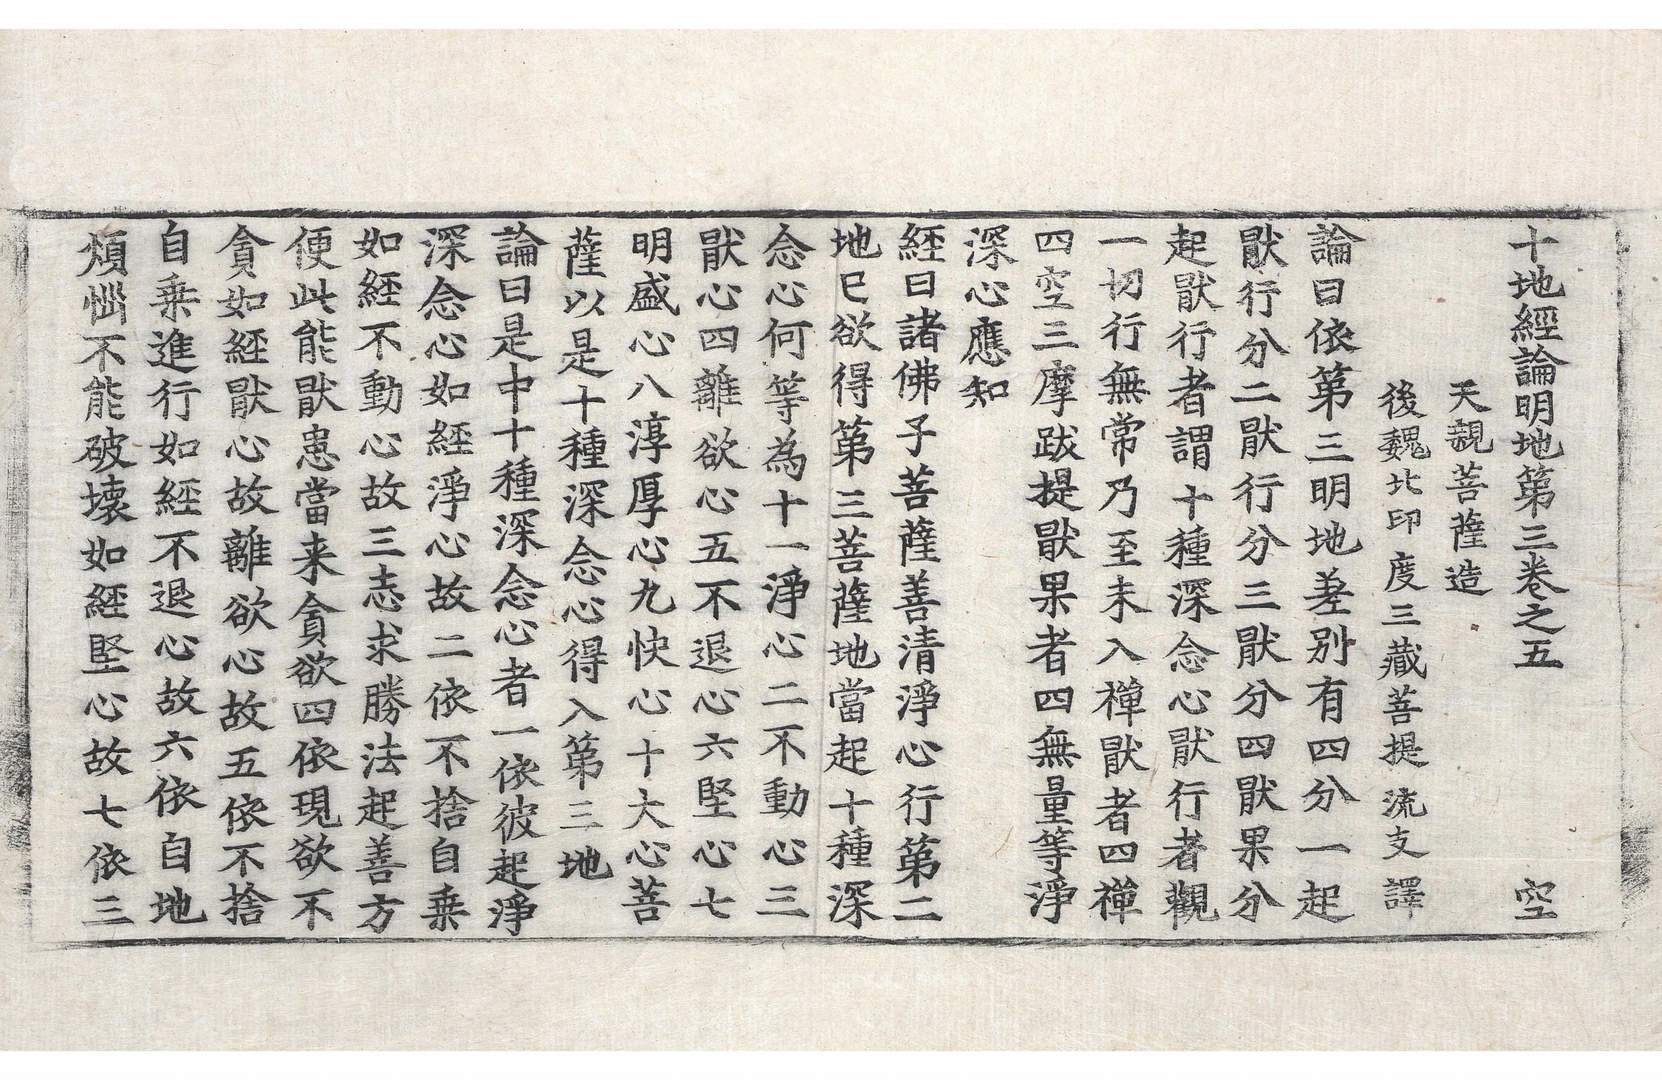 十地經論明地第三卷之五 空
天親菩薩造
後魏北印度三藏菩提流支譯
論曰依第三明地差別有四分一起
猒行分二猒行分三猒分四猒果分
起猒行者謂十種深念心猒行者觀
一切行無常乃至未入禪猒者四禪
四空三摩跋提猒果者四無量等淨
深心應知
經曰諸佛子菩薩善清淨心行第二
地已欲得第三菩薩地當起十種深
念心何等為十一淨心二不動心三
猒心四離欲心五不退心六堅心七
明盛心八淳厚心九快心十大心菩
薩以是十種深念心得入第三地
論曰是中十種深念心者一依彼起淨
深念心如經淨心故二依不捨自乗
如經不動心故三志求勝法起善方
便此能猒患當来貪欲四依現欲不
貪如經猒心故離欲心故五依不捨
自乗進行如經不退心故六依自地
煩惱不能破壊如經堅心故七依三